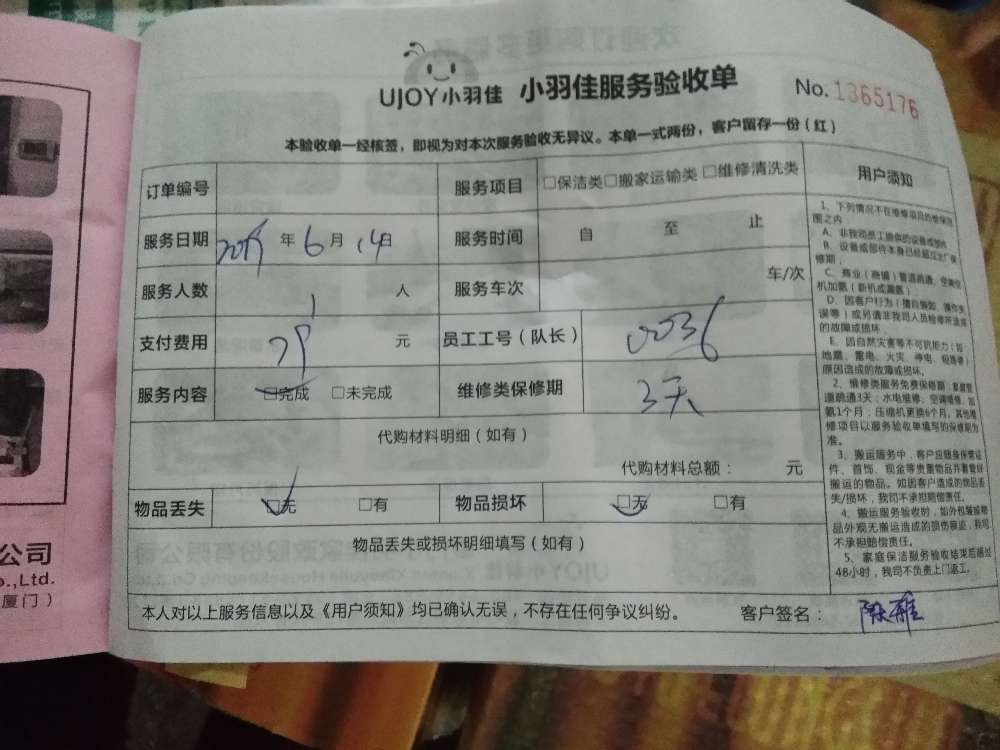 UJOY小羽佳 小羽佳服务验收单
No. 1365176
本验收单一经核签，即视为对本次服务验收无异议。本单一式两份，客户留存一份（红）
订单编号 服务项目 □保洁类□搬家运输类 □维修清洗类
服务日期 年 6 月 14日 服务时间 自 至 止
服务人数 1 人 服务车次 车/次
支付费用 元 员工工号（队长） 0036
服务内容 □完成 □未完成 维修类保修期 3天
代购材料明细（如有）
代购材料总额： 元
物品丢失 □无 □有 物品损坏 □无 □有
物品丢失或损坏明细填写（如有）
本人对以上服务信息以及《用户须知》均已确认无误，不存在任何争议纠纷。 客户签名： 陈雅
用户须知
1、下列情况不在维修项目的维保范
围之内
A、非我司员工提供的设备或部件
B、设备或部件本身已经超过出厂保
修期；
C、商业（商铺）管道疏通、空调
机加氨（新机或漏氨）
D、因客户行为（擅自拆卸、操作失
误等）或另请非我司人员检修所造成
的故障或损坏
E、因自然灾害等不可抗拒力（如：
地震、雷电、火灾、停电、短路等）
原因造成的故障或损坏。
2、维修类服务免费保修期：家庭管
道疏通3天；水电维修、空调维修、加
氨1个月；压缩机更换6个月，其他维
修项目以服务验收单填写的保修期为
准。
3、搬运服务中，客户应随身保管证
件、首饰、现金等贵重物品并看管好
搬运的物品。如因客户造成的物品丢
失/损坏，我司不承担赔偿责任。
4、搬运服务验收时，如外包装或物
品外观无搬运造成的损伤痕迹，我司
不承担赔偿责任。
5、家庭保洁服务验收结束后超过
48小时，我司不负责上门返工。
公司
o.,Ltd.
厦门）